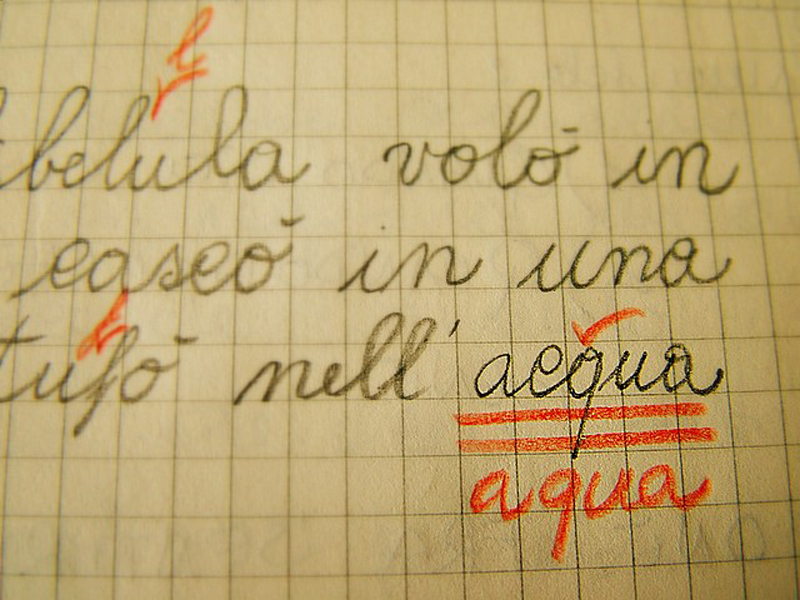 l
belula volò in
cascò in una
f
tufò nell'acqua
aqua